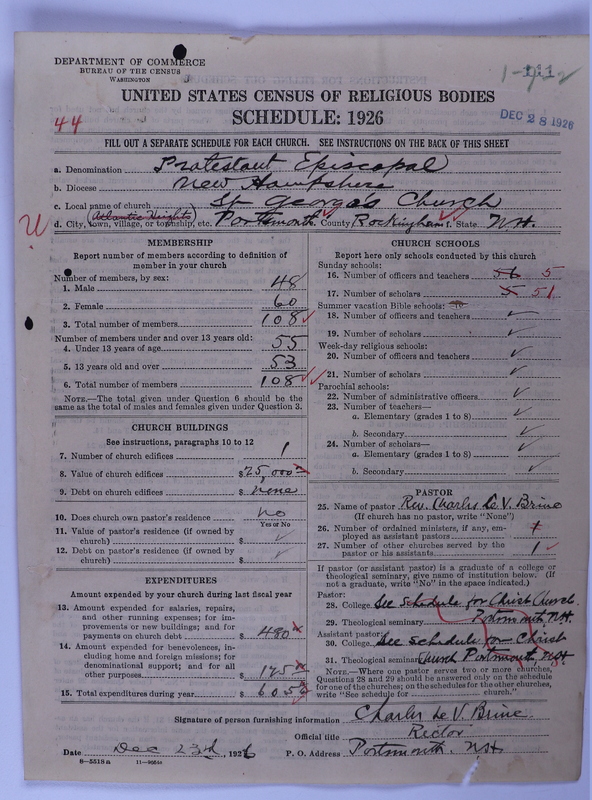 DEPARTMENT OF COMMERCE
BUREAU OF THE CENSUS
WASHINGTON
111
UNITED STATES CENSUS OF RELIGIOUS BODIES
44
SCHEDULE: 1926
DEC 28 1926
FILL OUT A SEPARATE SCHEDULE FOR EACH CHURCH. SEE INSTRUCTIONS ON THE BACK OF THIS SHEET
a. Denomination Protestant Episcopal
b. Diocese New Hampshire
c. Local name of church St George's Church
(Atlantic Heights)
d. City, town, village, or township, etc. Portsmouth County Rockingham State N.H.
MEMBERSHIP
Report number of members according to definition of
member in your church
Number of members, by sex:
1. Male 48
2. Female 60
3. Total number of members 108
Number of members under and over 13 years old:
4. Under 13 years of age 55
5. 13 years old and over 53
6. Total number of members 108
NOTE.—The total given under Question 6 should be
the same as the total of males and females given under Question 3.
CHURCH BUILDINGS
See instructions, paragraphs 10 to 12
7. Number of church edifices 1
8. Value of church edifices $25,000
9. Debt on church edifices $ none
10. Does church own pastor's residence no
Yes or No
11. Value of pastor's residence (if owned by
church) $
12. Debt on pastor's residence (if owned by
church) $
EXPENDITURES
Amount expended by your church during last fiscal year
13. Amount expended for salaries, repairs,
and other running expenses; for im-
provements or new buildings; and for
payments on church debt $ 480
14. Amount expended for benevolences, in-
cluding home and foreign missions; for
denominational support; and for all
other purposes $ 125
15. Total expenditures during year $ 605
CHURCH SCHOOLS
Report here only schools conducted by this church
Sunday schools:
16. Number of officers and teachers 56 5
17. Number of scholars 5 51
Summer vacation Bible schools:
18. Number of officers and teachers
19. Number of scholars
Week-day religious schools:
20. Number of officers and teachers
21. Number of scholars
Parochial schools:
22. Number of administrative officers
23. Number of teachers—
a. Elementary (grades 1 to 8)
b. Secondary
24. Number of scholars—
a. Elementary (grades 1 to 8)
b. Secondary
PASTOR
25. Name of pastor Rev. Charles Le V. Brine
(If church has no pastor, write "None")
26. Number of ordained ministers, if any, em-
ployed as assistant pastors
27. Number of other churches served by the
pastor or his assistants 1
If pastor (or assistant pastor) is a graduate of a college or
theological seminary, give name of institution below. (If
not a graduate, write "No" in the space indicated.)
Pastor:
28. College See Schedule for Christ Church
29. Theological seminary Portsmouth N.H.
Assistant pastor:
30. College See Schedule for Christ
31. Theological seminary Church Portsmouth, N.H.
NOTE.—Where one pastor serves two or more churches,
Questions 28 and 29 should be answered only on the schedule
for one of the churches; on the schedules for the other churches,
write "See schedule for church."
Signature of person furnishing information Charles Le V. Brine
Official title Rector
Date Dec 23rd, 1926 P. O. Address Portsmouth. N.H.
8—5518a 11—9054